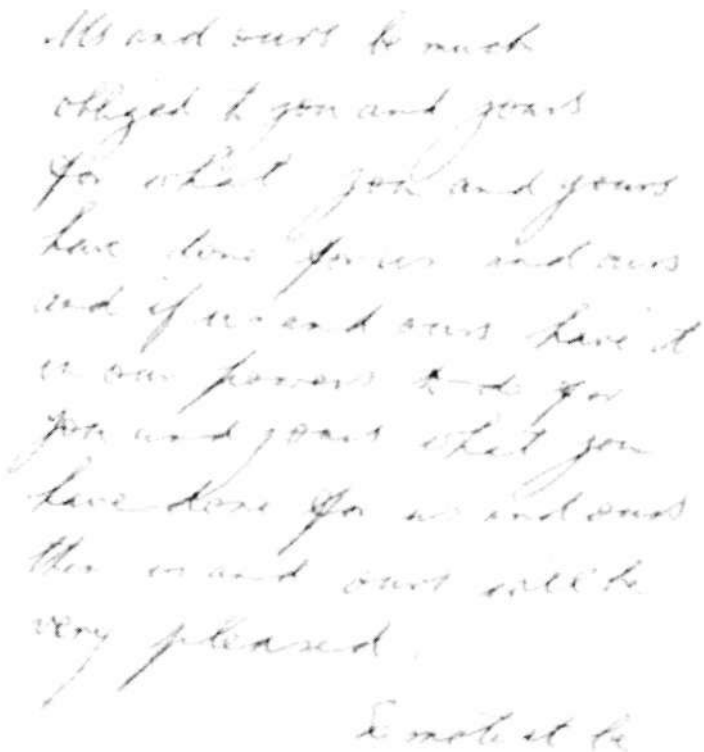 Us and ours be much
obliged to you and yours
for what you and yours
have done for us and ours
and if us and ours have it
in our powers to do for
you and yours what you
have done for us and ours
then us and ours will be
very pleased.
So mote it be